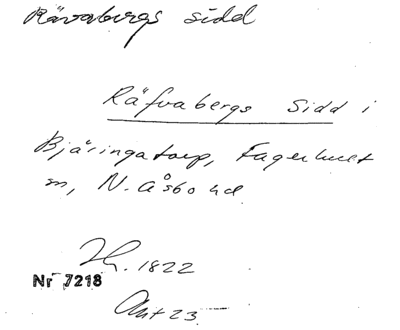 Rävabergs sidd
Räfvabergs Sidd i
Bjäringatorp, Fagerhult
sn, N. Åsbo hd
1822
Nr 7218
Akt 23